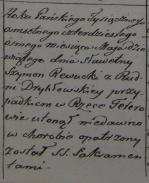 Roku Pańskiego tysiącznego
ośmsetnego czterdziestego
ósmego miesiąca Maja dzie
wiątego dnia Sławetny
Szymon Rewucki z Rud
ni Drybłowskiey przy
padkiem w Rzece Tetero
wie utonął niedawno
w chorobie opatrzony
został SS. Sakramen
tami.